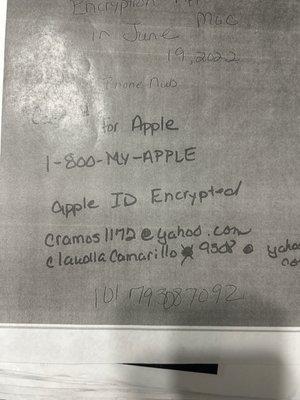 Encryption
MGC
in June
19, 2022
Phone Num
for Apple
1-800-MY-APPLE
Apple ID Encrypted
cramos1172@yahoo.com
claudiacamarillo 9508@ yahoo
101793087092